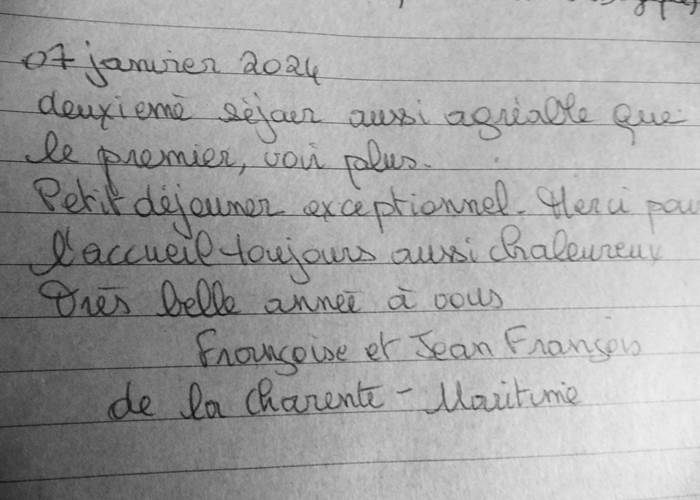 07 janvier 2024
deuxième séjour aussi agréable que
le premier, voir plus.
Petit déjeuner exceptionnel. Merci pou
l'accueil toujours aussi chaleureux
Très belle année à vous
Françoise et Jean François
de la Charente - Maritime